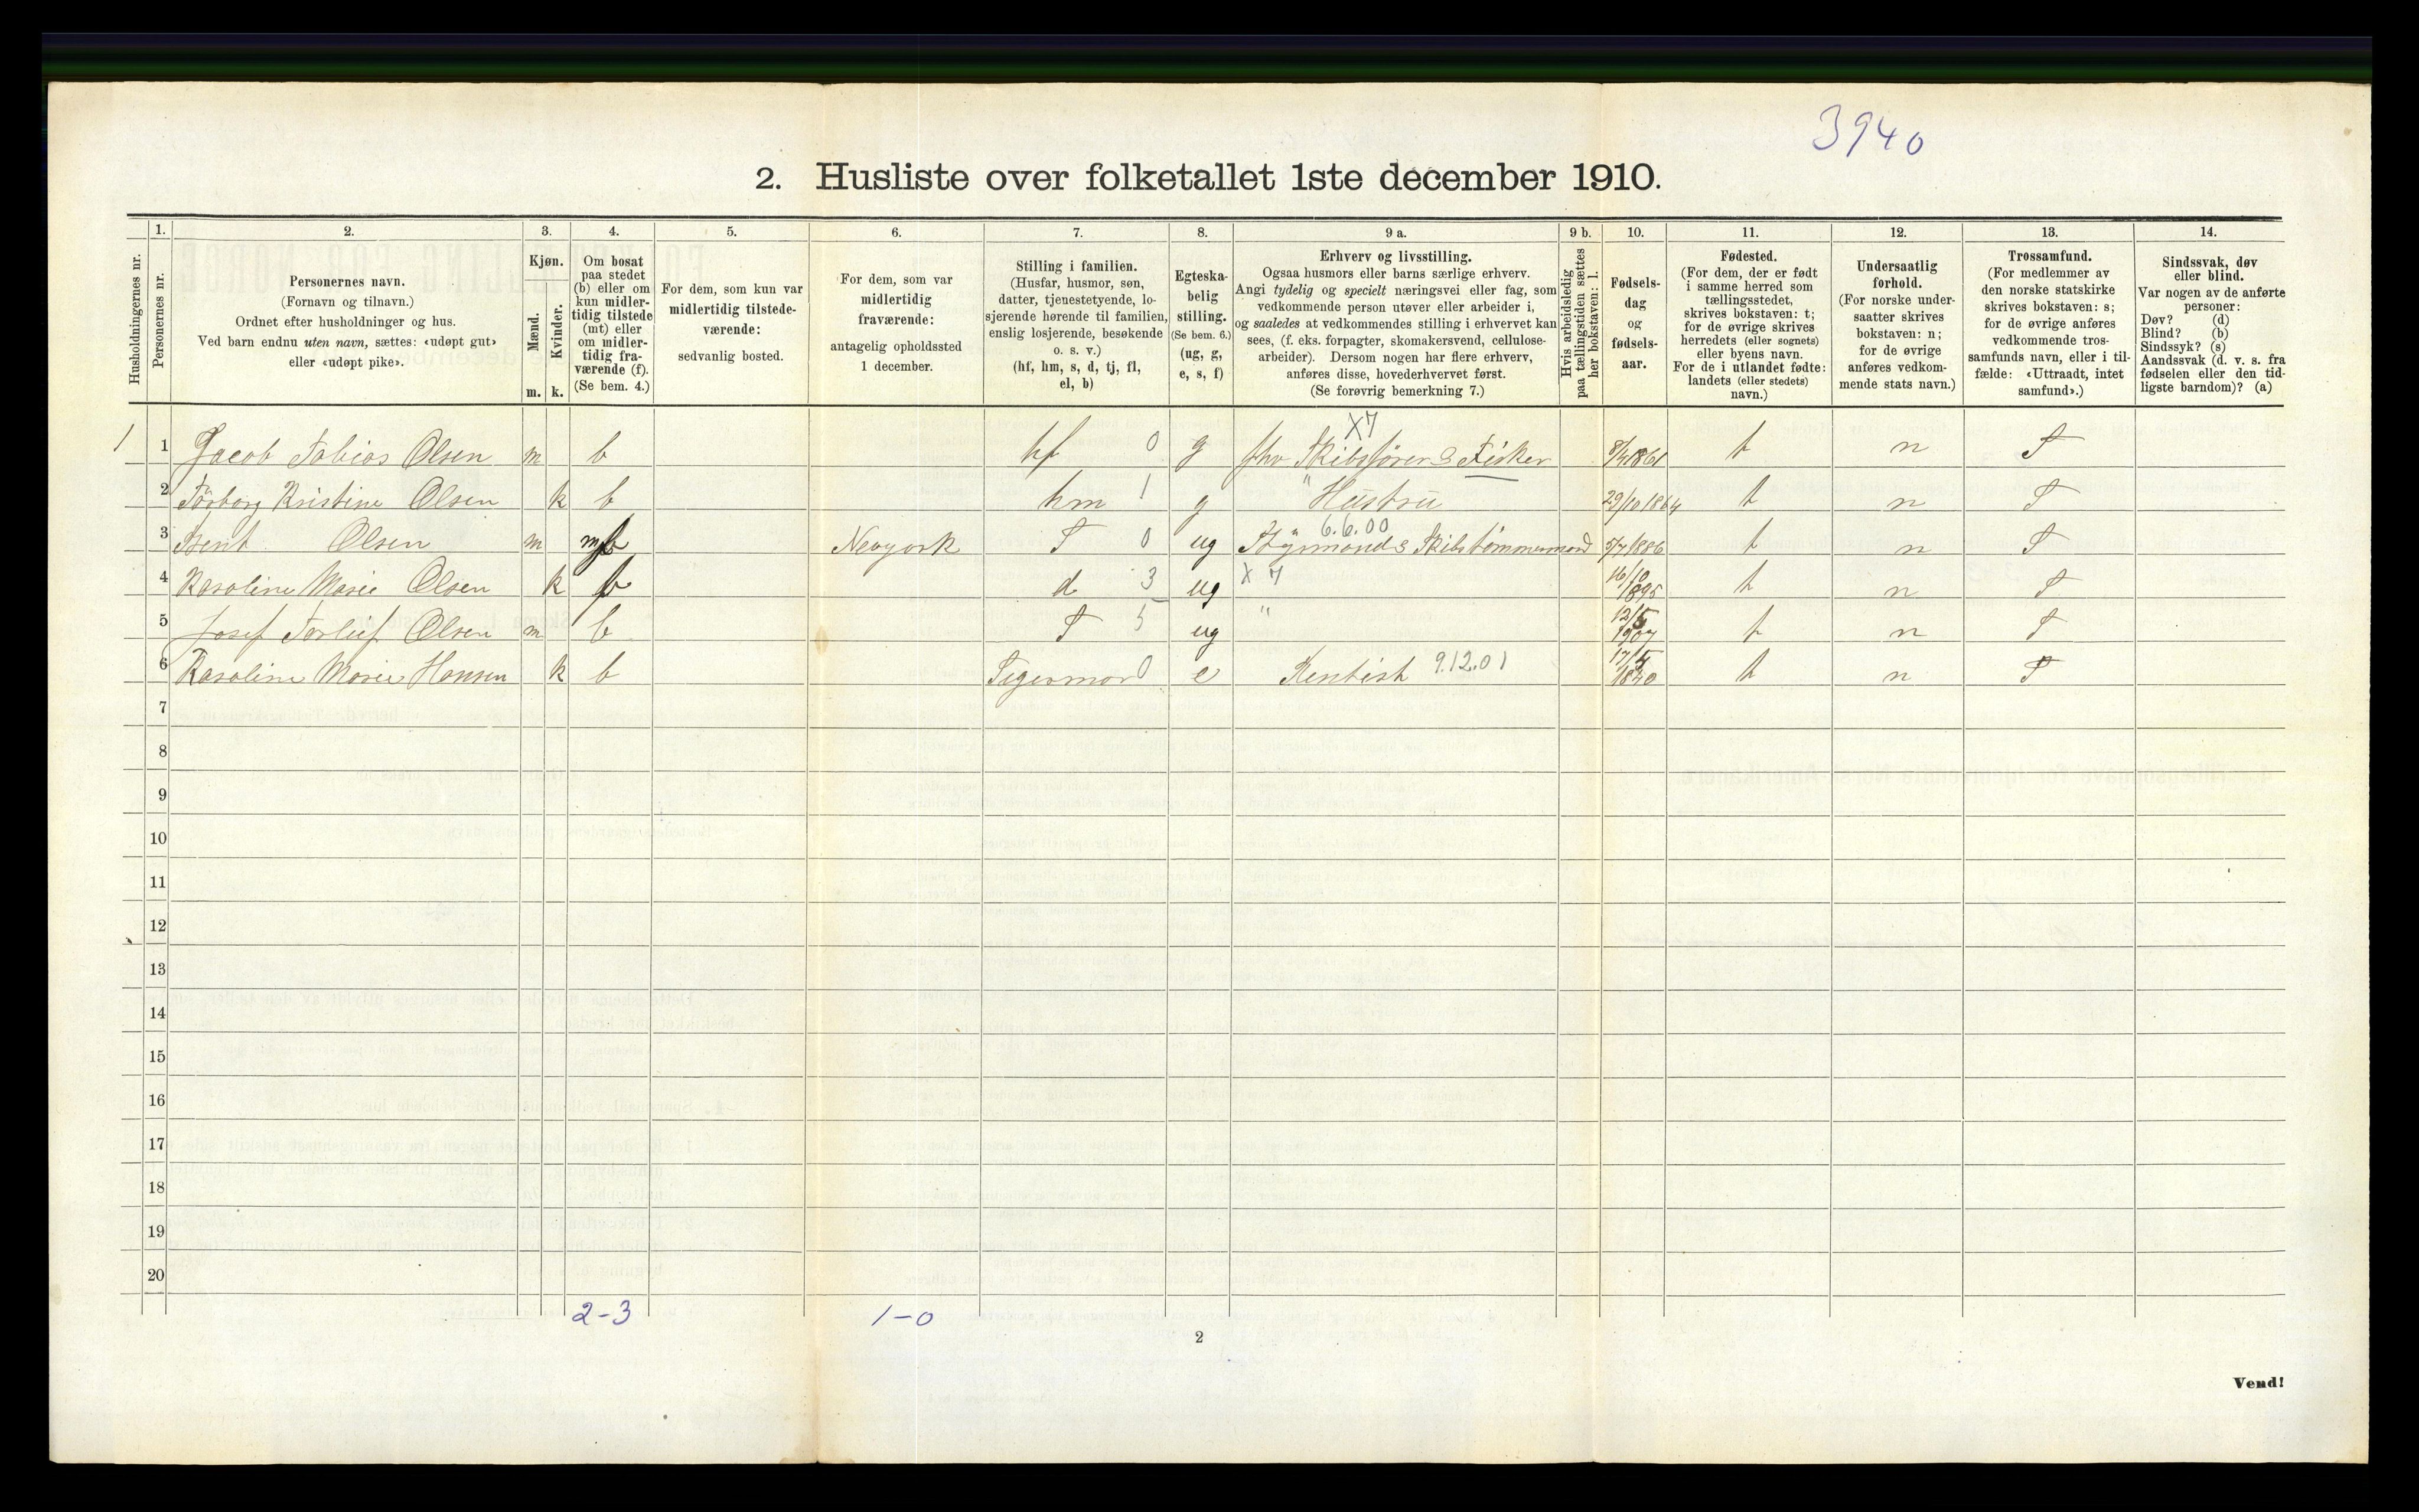 3940
2. Husliste over folketallet 1ste december 1910.
Husholdningernes nr.
1. Personernes nr.
2. Personernes navn. (Fornavn og tilnavn.) Ordnet efter husholdninger og hus. Ved barn endnu uten navn, sættes: «udøpt gut» eller «udøpt pike».
3. Kjøn. Mænd. m. Kvinder. k.
4. Om bosat paa stedet (b) eller om kun midlertidig tilstede (mt) eller om midlertidig fraværende (f). (Se bem. 4.)
5. For dem, som kun var midlertidig tilstedeværende: sedvanlig bosted.
6. For dem, som var midlertidig fraværende: antagelig opholdssted 1 december.
7. Stilling i familien. (Husfar, husmor, søn, datter, tjenestetyende, losjerende hørende til familien, enslig losjerende, besøkende o. s. v.) (hf, hm, s, d, tj, fl, el, b)
8. Egteskabelig stilling. (Se bem. 6.) (ug, g, e, s, f)
9 a. Erhverv og livsstilling. Ogsaa husmors eller barns særlige erhverv. Angi tydelig og specielt næringsvei eller fag, som vedkommende person utøver eller arbeider i, og saaledes at vedkommendes stilling i erhvervet kan sees, (f. eks. forpagter, skomakersvend, cellulosearbeider). Dersom nogen har flere erhverv, anføres disse, hovederhvervet først. (Se forøvrig bemerkning 7.)
9 b. Hvis arbeidsledig paa tællingstiden sættes her bokstaven: l.
10. Fødselsdag og fødselsaar.
11. Fødested. (For dem, der er født i samme herred som tællingsstedet, skrives bokstaven: t; for de øvrige skrives herredets (eller sognets) eller byens navn. For de i utlandet fødte: landets (eller stedets) navn.)
12. Undersaatlig forhold. (For norske undersaatter skrives bokstaven: n; for de øvrige anføres vedkommende stats navn.)
13. Trossamfund. (For medlemmer av den norske statskirke skrives bokstaven: s; for de øvrige anføres vedkommende trossamfunds navn, eller i tilfælde: «Uttraadt, intet samfund».)
14. Sindssvak, døv eller blind. Var nogen av de anførte personer: Døv? (d) Blind? (b) Sindssyk? (s) Aandssvak (d. v. s. fra fødselen eller den tidligste barndom)? (a)
X 7
1 1 Jacob Tobias Olsen m b hf 0 g fhv Skibsfører & Fisker 8/4 1861 t n S
2 Torborg Kristine Olsen k b hm 1 g " Hustru 29/10 1864 t n S
6.6.00
3 Bent Olsen m Newyork S 0 ug Styrmand & Skibstømmermand 5/7 1886 t n S
4 Karoline Marie Olsen k b d 3 ug X 7 16/10 1895 t n S
5 Josef Torleif Olsen m b S 5 ug " 12/5 1907 t n S
6 Karoline Marie Hansen k b Sigermor 0 e Rentist 9.12.01 17/5 1840 t n S
7
8
9
10
11
12
13
14
15
16
17
18
19
20
2-3 1-0
2
Vend!